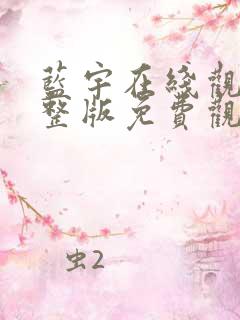 藍宇在綫觀
整版免費觀
虫2